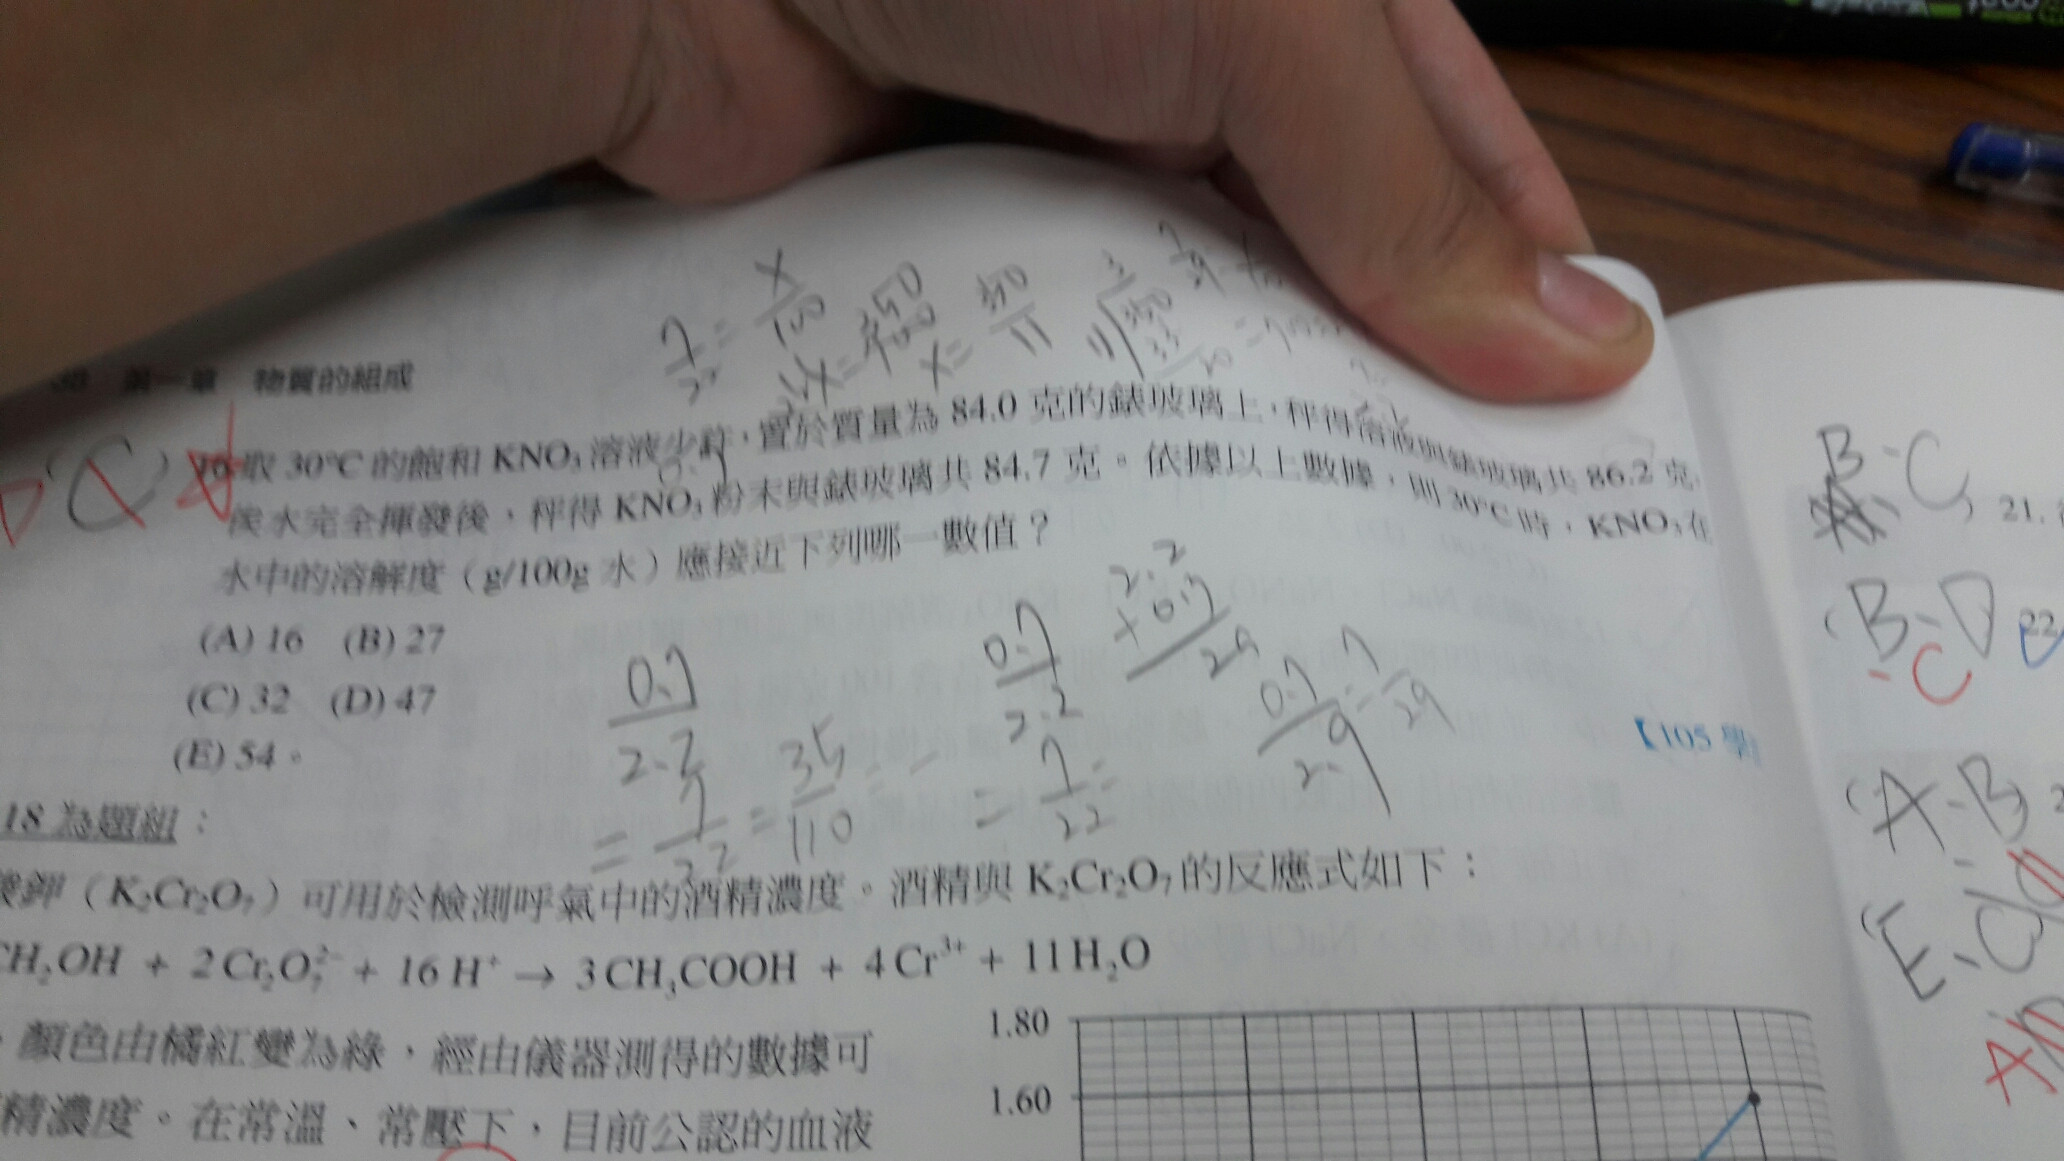 第一章 物質的組成
7/22 = x/100
x = 350/11
C
取 30°C 的飽和 KNO₃ 溶液少許,置於質量為 84.0 克的錶玻璃上,秤得溶液與錶玻璃共 86.2 克,
俟水完全揮發後,秤得 KNO₃ 粉末與錶玻璃共 84.7 克。依據以上數據,則 30°C 時,KNO₃ 在
水中的溶解度(g/100g 水)應接近下列哪一數值?
(A) 16 (B) 27
(C) 32 (D) 47
(E) 54。
【105 學
0.7/2.2
= 7/22 = 35/110 =
0.7/2.2
= 7/22 =
2.2
+ 0.7
2.9
0.7/2.9 = 7/29
18 為題組:
酸鉀(K₂Cr₂O₇)可用於檢測呼氣中的酒精濃度。酒精與 K₂Cr₂O₇ 的反應式如下:
CH₂OH + 2 Cr₂O₇²⁻ + 16 H⁺ → 3 CH₃COOH + 4 Cr³⁺ + 11 H₂O
,顏色由橘紅變為綠,經由儀器測得的數據可
精濃度。在常溫、常壓下,目前公認的血液
1.80
1.60
B-C
21.
B-D
22
-C
A-B
E-C